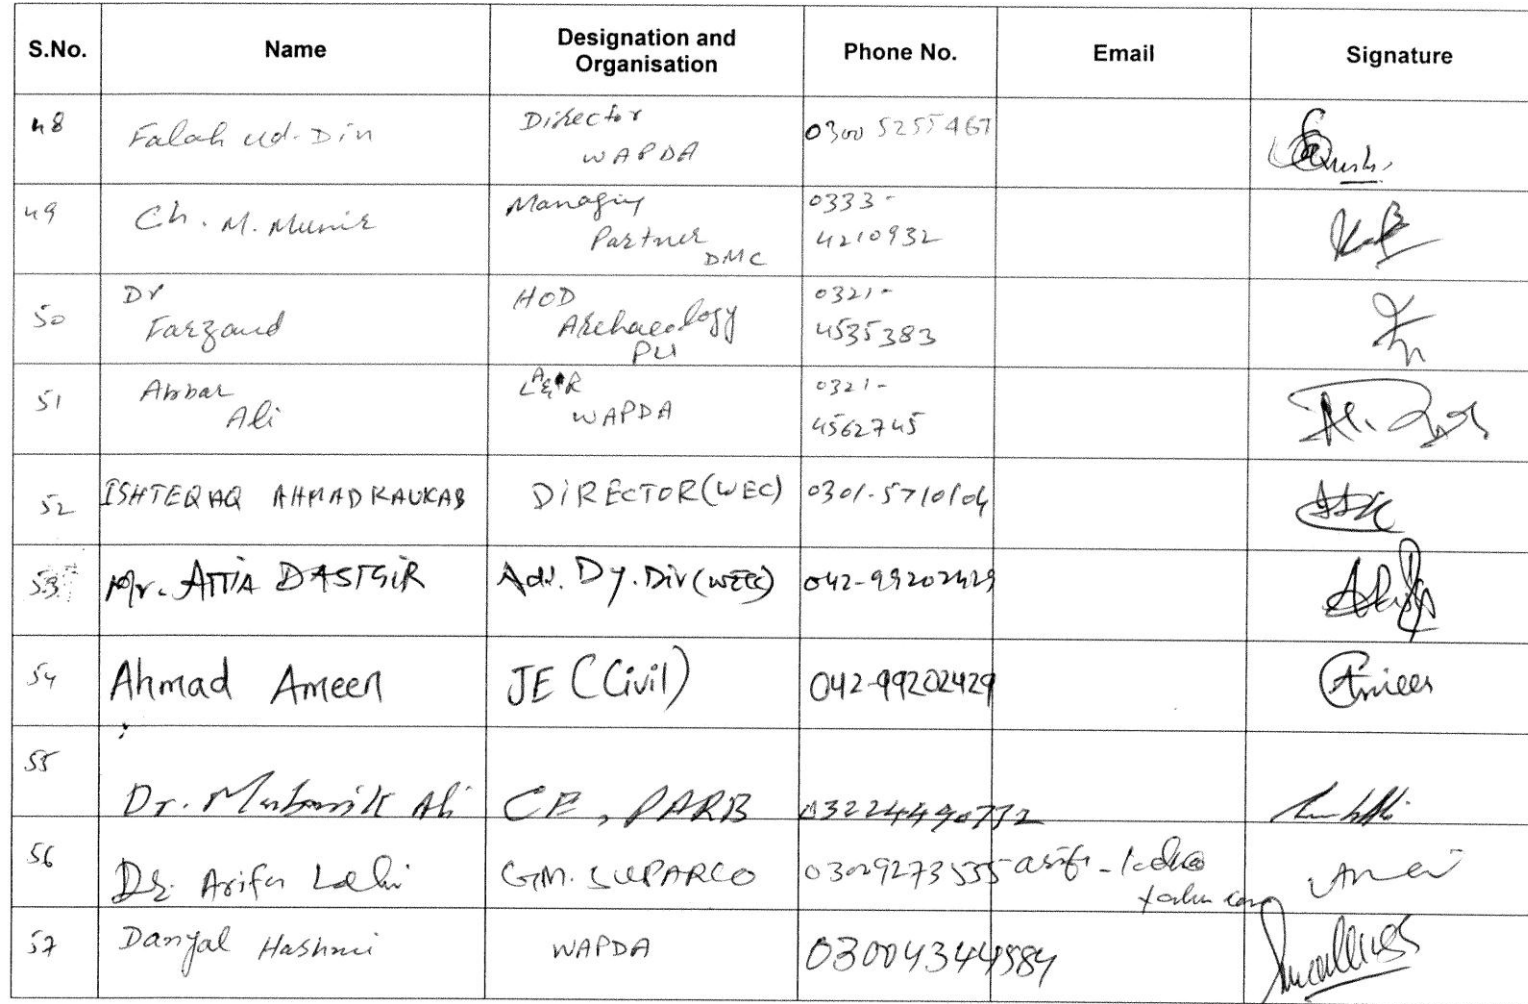 S.No. Name Designation and Organisation Phone No. Email Signature
48 Falah ud-Din Director WAPDA 0300 5255467
49 Ch. M. Munir Managing Partner DMC 0333-4210932
50 Dr Farzand HOD Archaeology PU 0321-4535383
51 Abbar Ali LA&R WAPDA 0321-4562745
52 ISHTEQAQ AHMAD KAUKAB DIRECTOR (WEC) 0301-5710104
53 Mr. ATTA DASTGIR Ad. Dy. Dir (WEC) 042-99202429
54 Ahmad Ameen JE (Civil) 042-99202429
55 Dr. Mubarik Ali CE, PARB 03224490732
56 Dr. Arifa Lodhi GM. SUPARCO 03029273555
57 Danyal Hashmi WAPDA 03004344984